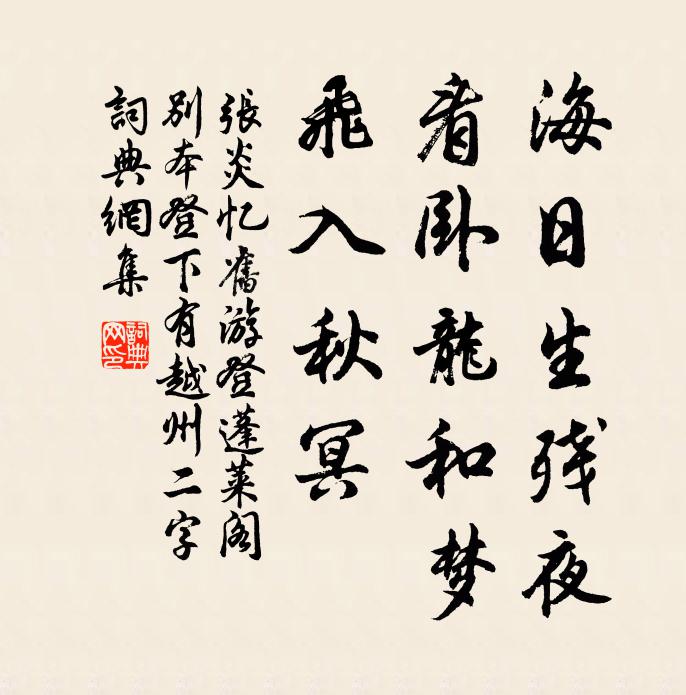 海日生残夜
看卧龍和梦
飛入秋冥
張炎忆舊游登蓬萊阁
别本登下有越州二字
詞典網集
詞典網印